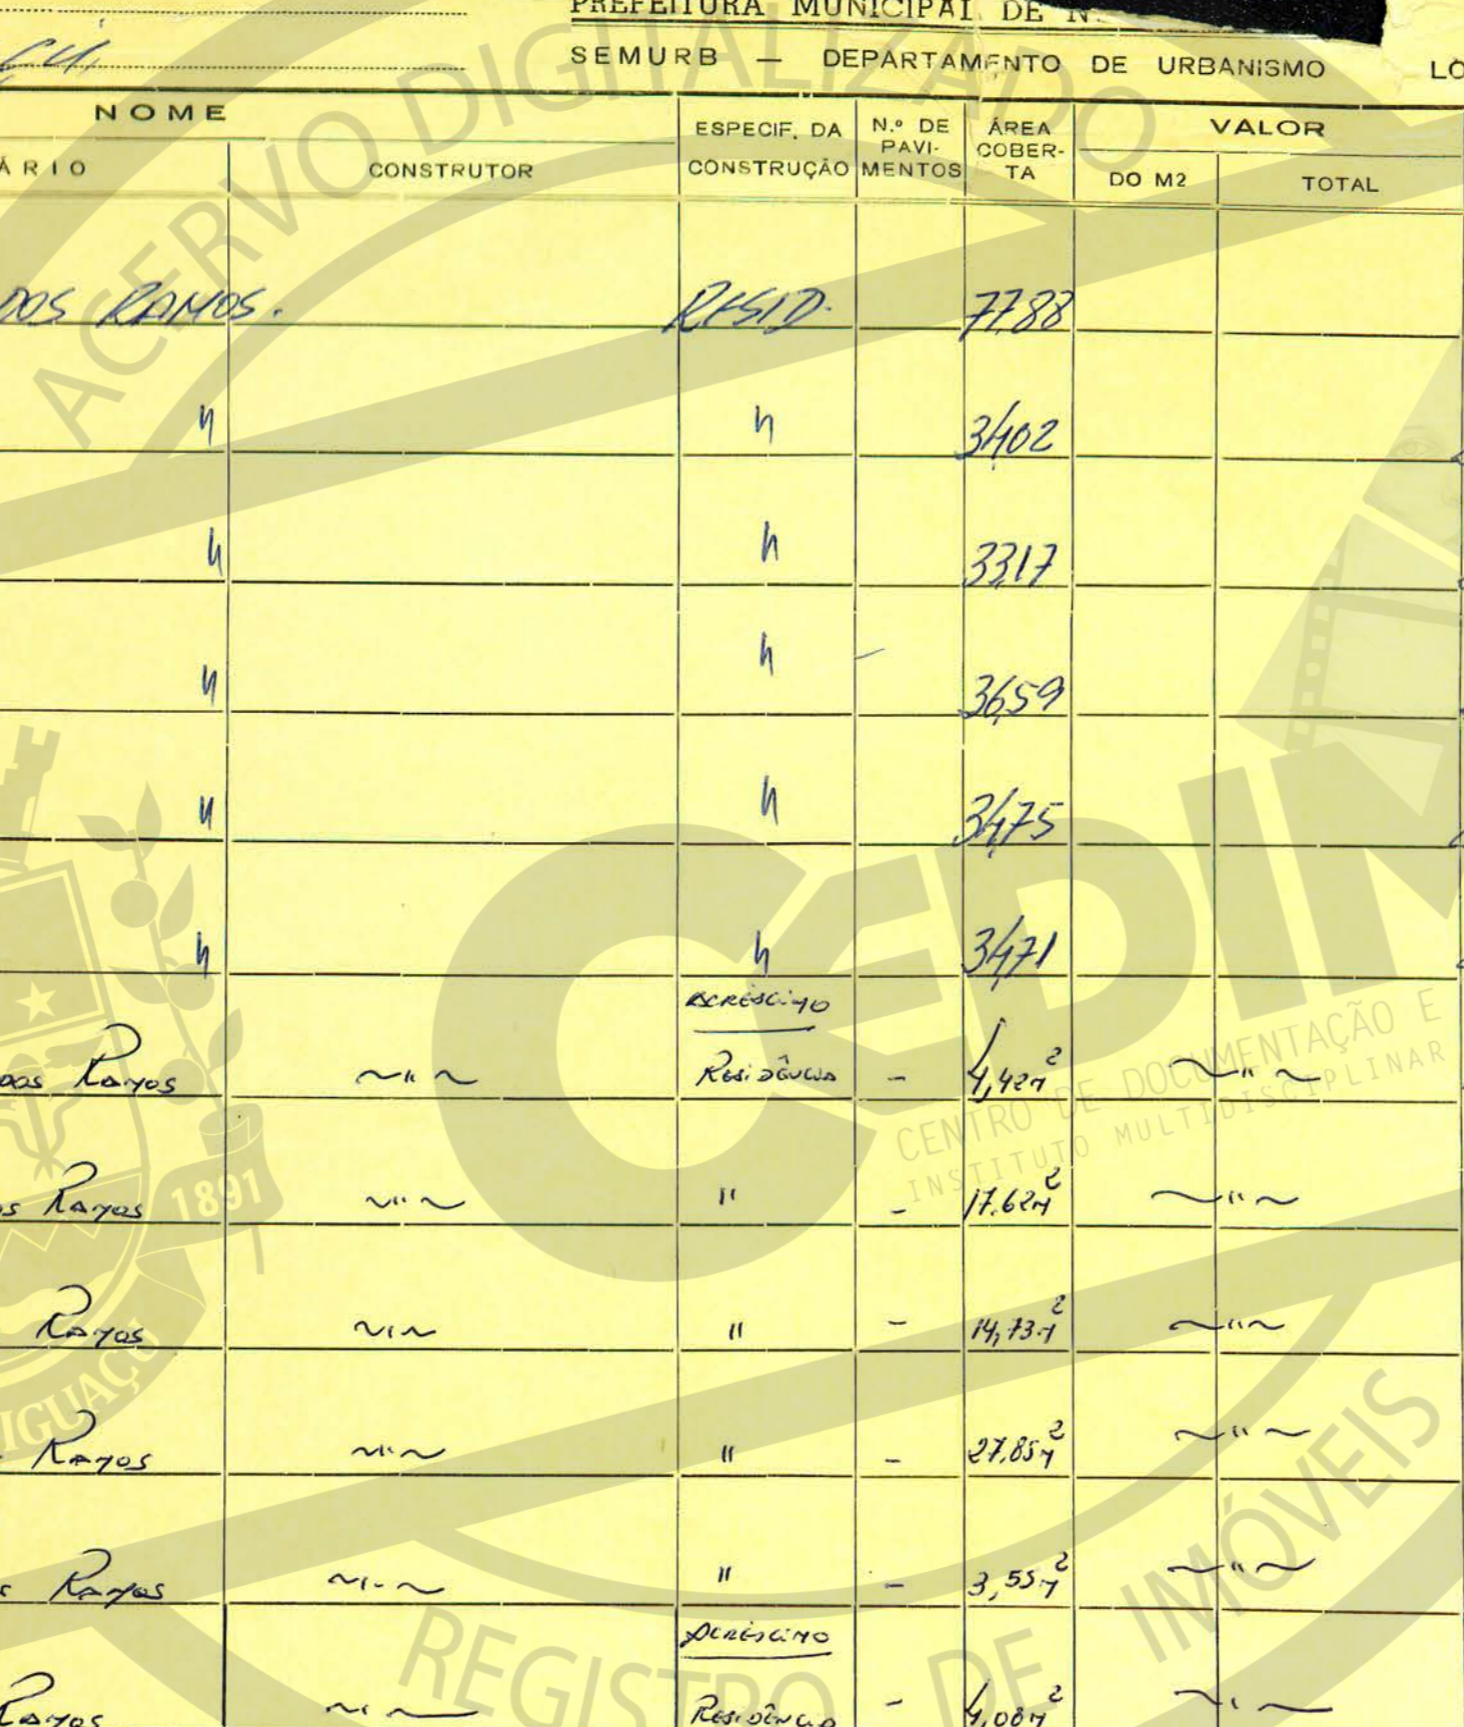 PREFEITURA MUNICIPAL DE N.
SEMURB — DEPARTAMENTO DE URBANISMO LO
NOME
ÁRIO CONSTRUTOR
ESPECIF. DA CONSTRUÇÃO
N.º DE PAVI-MENTOS
ÁREA COBER-TA
VALOR
DO M2 TOTAL
DOS RAMOS. RESID. 77,88
" " 34,02
" " 33,17
" " 36,59
" " 34,75
" " 34,71
ACRÉSCIMO
dos Ramos ~"~ RESIDÊNCIA - 4,42M² ~"~
os Ramos ~"~ " - 17.62M² ~"~
Ramos ~"~ " - 14,73M² ~"~
Ramos ~"~ " - 27,85M² ~"~
s Ramos ~"~ " - 3,55M² ~"~
ACRÉSCIMO
Ramos ~"~ RESIDÊNCIA - 4,08M² ~"~
ACERVO DIGITALIZADO
CEDIM
CENTRO DE DOCUMENTAÇÃO E
INSTITUTO MULTIDISCIPLINAR
1891
IGUAÇU
REGISTRO DE IMÓVEIS